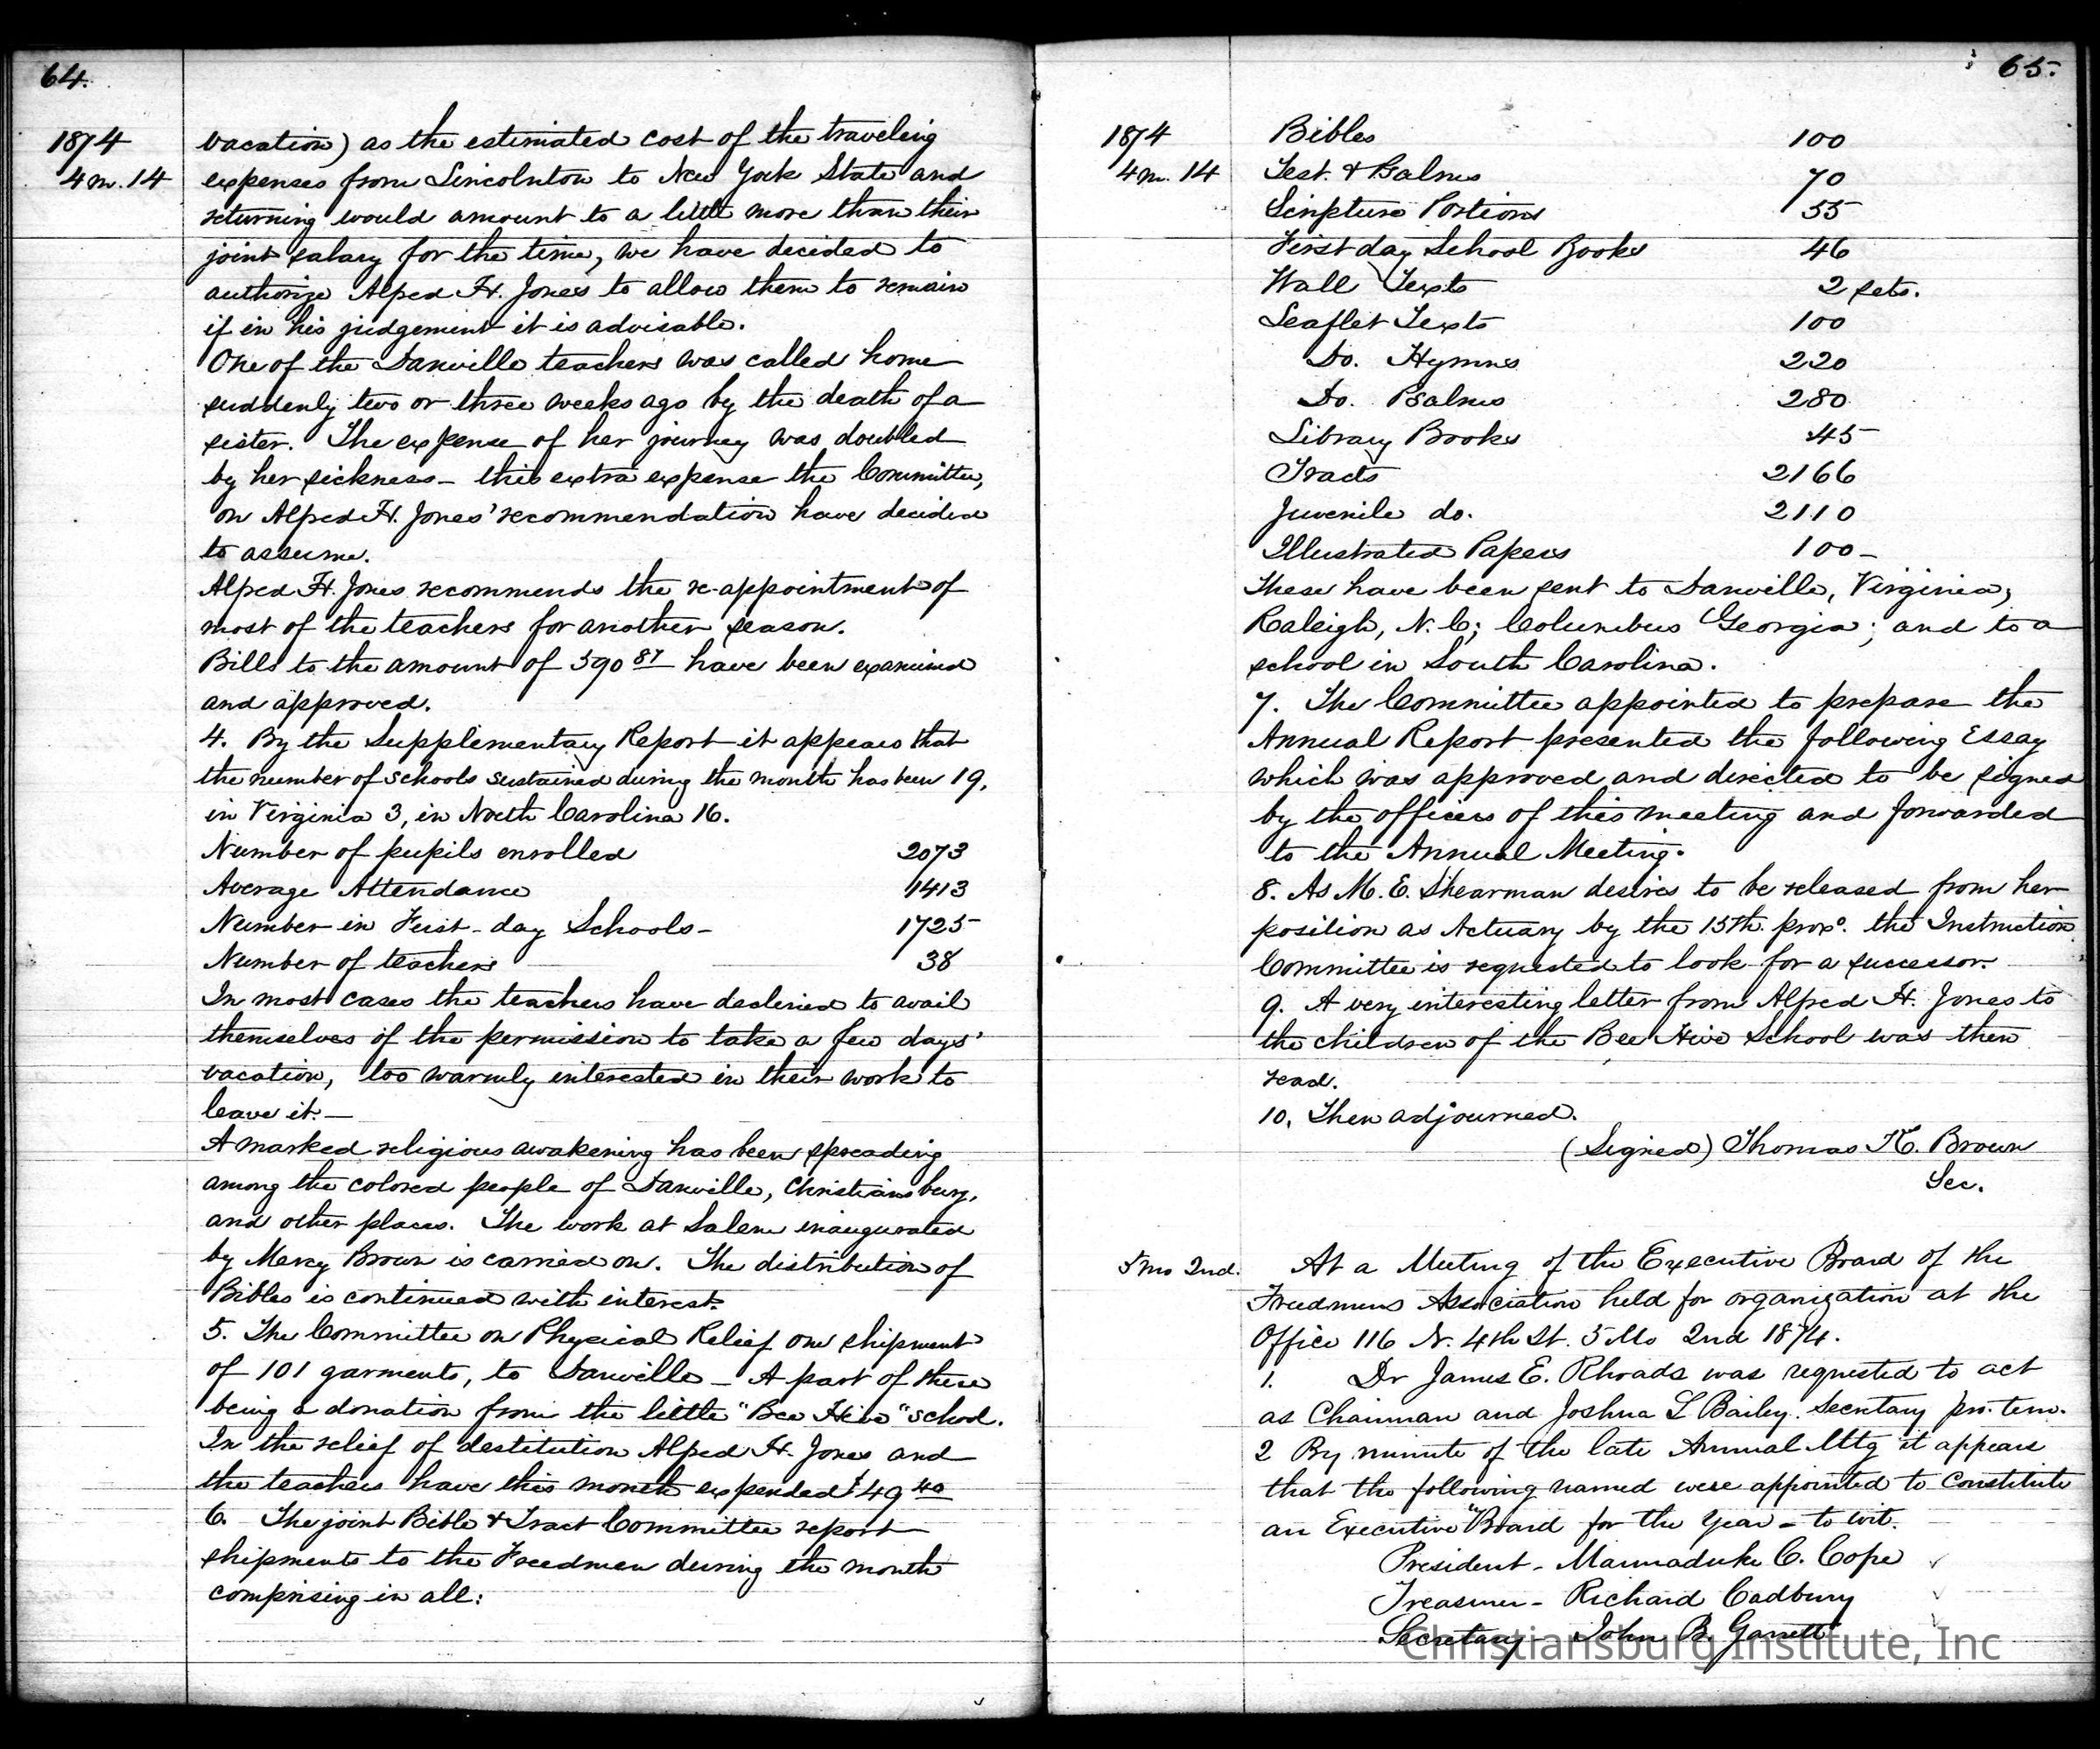 64.
1874
4 m. 14
vacation) as the estimated cost of the traveling
expenses from Lincolnton to New York State and
returning would amount to a little more than their
joint salary for the time, we have decided to
authorize Alfred H. Jones to allow them to remain
if in his judgement it is advisable.
One of the Danville teachers was called home
suddenly two or three weeks ago by the death of a
sister. The expense of her journey was doubled
by her sickness - this extra expense the Committee,
on Alfred H. Jones' recommendation have decided
to assume.
Alfred H. Jones recommends the re-appointment of
most of the teachers for another season.
Bills to the amount of 590 87 have been examined
and approved.
4. By the Supplementary Report it appears that
the number of schools sustained during the month has been 19,
in Virginia 3, in North Carolina 16.
Number of pupils enrolled 2073
Average Attendance 1413
Number in First-day Schools- 1725
Number of teachers 38
In most cases the teachers have declined to avail
themselves of the permission to take a few days'
vacation, too warmly interested in their work to
leave it. —
A marked religious awakening has been spreading
among the colored people of Danville, Christiansburg,
and other places. The work at Salem inaugurated
by Mercy Brown is carried on. The distribution of
Bibles is continued with interest.
5. The Committee on Physical Relief one shipment
of 101 garments, to Danville - A part of these
being a donation from the little "Bee Hive" school.
In the relief of destitution Alfred H. Jones and
the teachers have this month expended $49 40
6. The joint Bible & Tract Committee report
shipments to the Freedmen during the month
comprising in all:
65.
1874
4 m. 14
Bibles 100
Test. & Psalms 70
Scripture Portions 55
First day School Books 46
Wall Texts 2 sets.
Leaflet Texts 100
Do. Hymns 220
Do. Psalms 280
Library Books 45
Tracts 2166
Juvenile do. 2110
Illustrated Papers 100 -
These have been sent to Danville, Virginia,
Raleigh, N. C; Columbus Georgia; and to a
school in South Carolina.
7. The Committee appointed to prepare the
Annual Report presented the following Essay
which was approved and directed to be signed
by the officers of this meeting and forwarded
to the Annual Meeting.
8. As M. E. Shearman desires to be released from her
position as Actuary by the 15th. proxo. the Instruction
Committee is requested to look for a successor.
9. A very interesting letter from Alfred H. Jones to
the children of the Bee Hive School was then
read.
10. Then adjourned.
(Signed) Thomas K. Brown
Sec.
5 mo 2nd.
At a Meeting of the Executive Board of the
Freedmens Association held for organization at the
Office 116 N. 4th St. 5 Mo 2nd 1874.
1. Dr James E. Rhoads was requested to act
as Chairman and Joshua L Bailey. Secretary pro. tem.
2 By minute of the late Annual Mtg it appears
that the following named were appointed to constitute
an Executive Board for the Year - to wit.
President - Marmaduke C. Cope
Treasurer - Richard Cadbury
Secretary - John B. Garrett
Christiansburg Institute, Inc